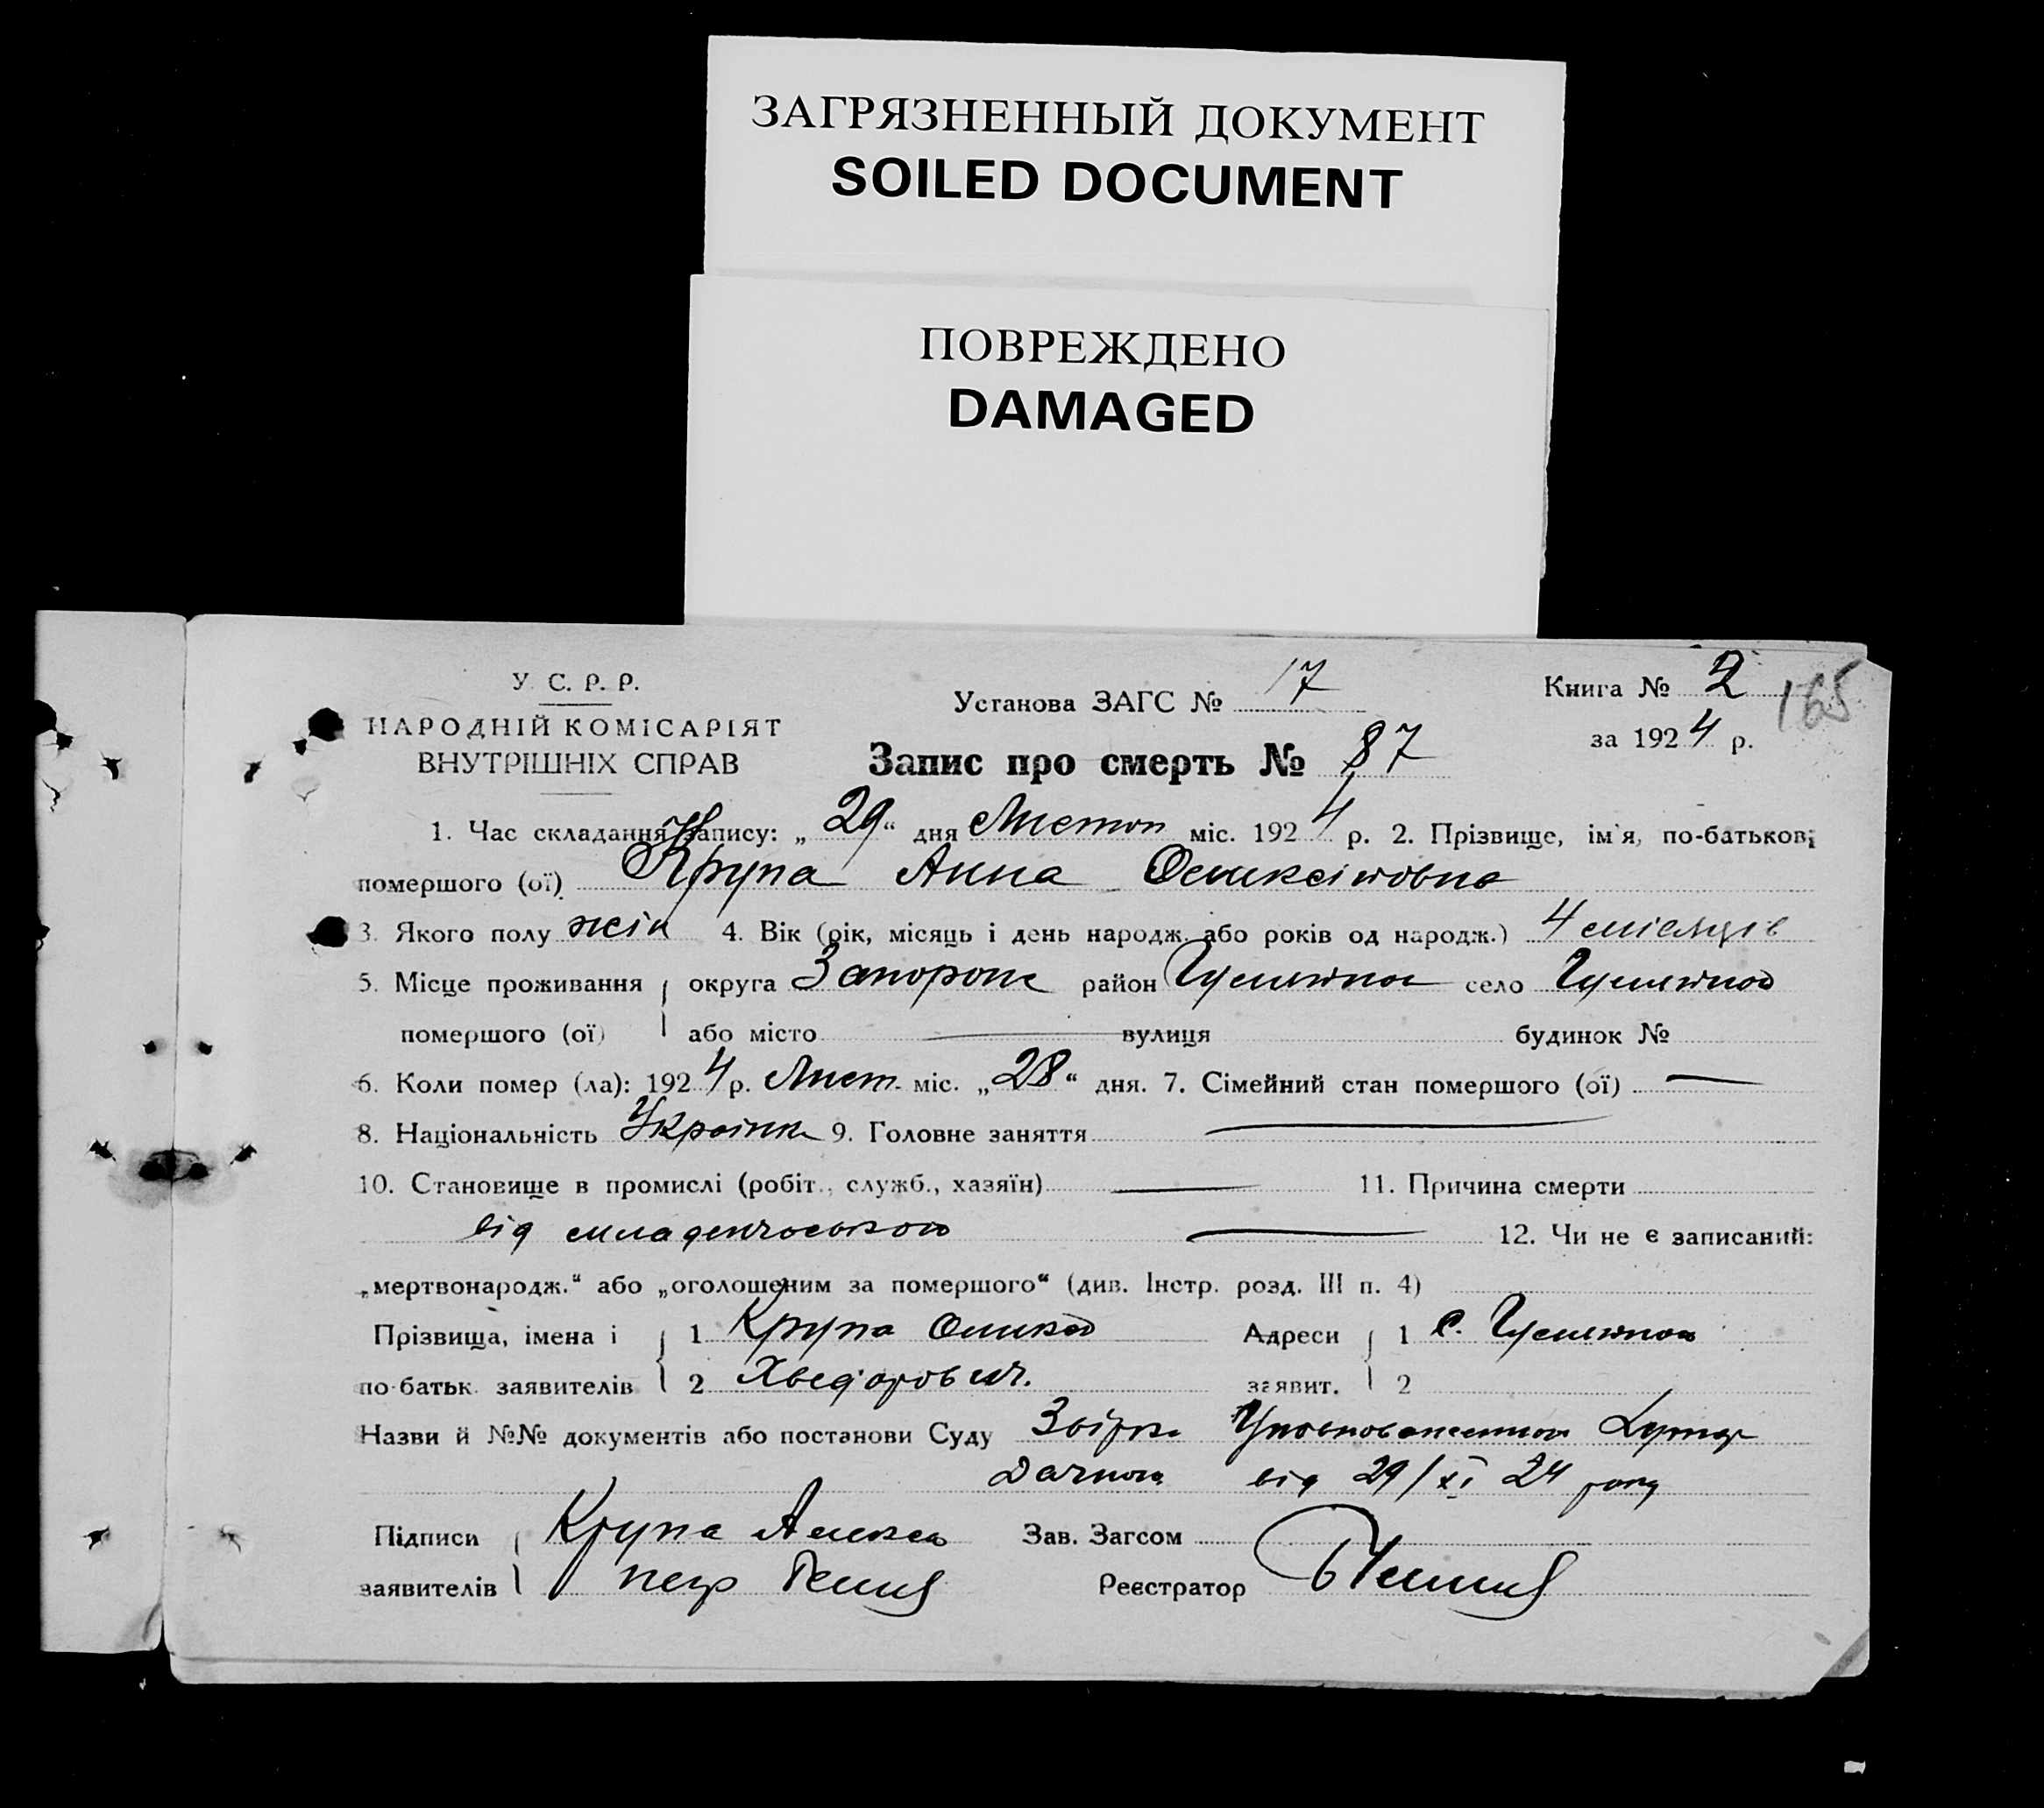 ЗАГРЯЗНЕННЫЙ ДОКУМЕНТ
SOILED DOCUMENT
ПОВРЕЖДЕНО
DAMAGED
У. С. Р. Р.
НАРОДНІЙ КОМІСАРІЯТ
ВНУТРІШНІХ СПРАВ
Установа ЗАГС № 17
Книга № 2
165
за 1924 р.
Запис про смерть № 87
1. Час складання запису: „29“ дня Листоп міс. 1924 р. 2. Прізвище, ім'я, по-батькові
помершого (ої) Крупа Анна
3. Якого полу жін 4. Вік (рік, місяць і день народж. або років од народж.) 4 місяців
5. Місце проживання округа Запорож район село
помершого (ої) або місто вулиця будинок №
6. Коли помер (ла): 1924 р. Лист. міс. „28“ дня. 7. Сімейний стан помершого (ої) —
8. Національність Українк 9. Головне заняття —
10. Становище в промислі (робіт., служб., хазяїн) — 11. Причина смерти
від младенчеського — 12. Чи не є записаний:
„мертвонародж.“ або „оголошеним за помершого“ (див. Інстр. розд. III п. 4)
Прізвища, імена і 1 Крупа Адреси 1 с.
по-батьк. заявителів 2 Хведорович. заявит. 2
Назви й №№ документів або постанови Суду
від 29/XI 24 року
Підписи Крупа Зав. Загсом
заявителів Реєстратор